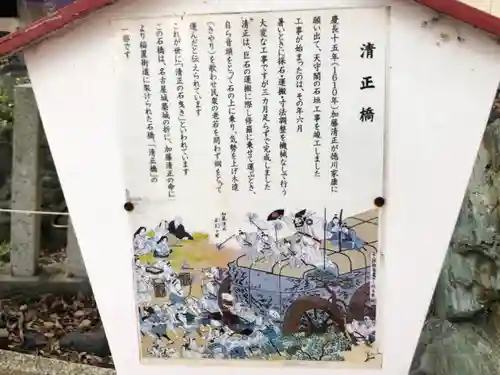 清正橋
慶長十五年(1610年)加藤清正が徳川家康に
願い出て、天守閣の石垣工事を竣工しました
工事が始まったのは、その年六月
暑いときに採石・運搬・寸法調整を機械なしで行う
大変な工事ですが三カ月足らずで完成しました
清正は、巨石の運搬に際し修羅に乗せて運ぶとき、
自ら音頭をとって石の上に乗り、気勢を上げ木遣
(きやり)を歌わせ民衆の老若を問わず綱をとって
運んだと伝えられています
これが世に「清正の石曳き」といわれています
この石橋は、名古屋城築城の折に、加藤清正の命に
より稲置街道に架けられた石橋、「清正橋」の
一部です